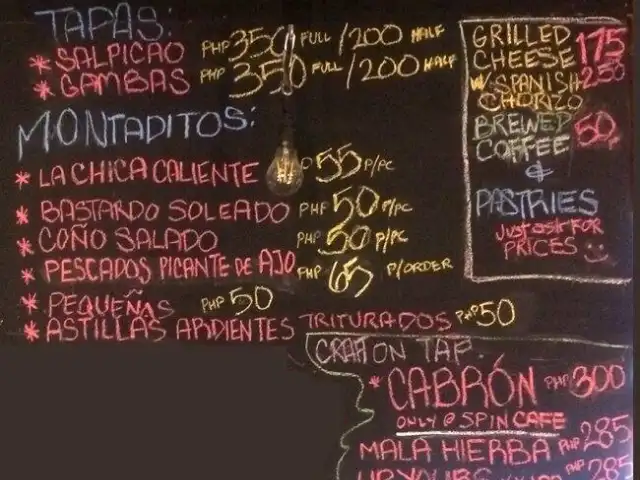 TAPAS:
* SALPICAO PHP 350 FULL / 200 HALF
* GAMBAS PHP 350 FULL / 200 HALF
MONTADITOS:
* LA CHICA CALIENTE 55 P/PC
* BASTARDO SOLEADO PHP 50 P/PC
* COÑO SALADO PHP 50 P/PC
* PESCADOS PICANTE DE AJO PHP 65 P/ORDER
* PEQUEÑAS PHP 50
* ASTILLAS TRITURADOS PHP 50
GRILLED
CHEESE 175
W/ SPANISH 250
CHORIZO
BREWED
COFFEE 50
&
PASTRIES
JUST ASK FOR
PRICES
CRAFT ON TAP.
* CABRÓN PHP 300
ONLY @ SPIN CAFE
MALA HIERBA PHP 285
UP YOURS PHP 285